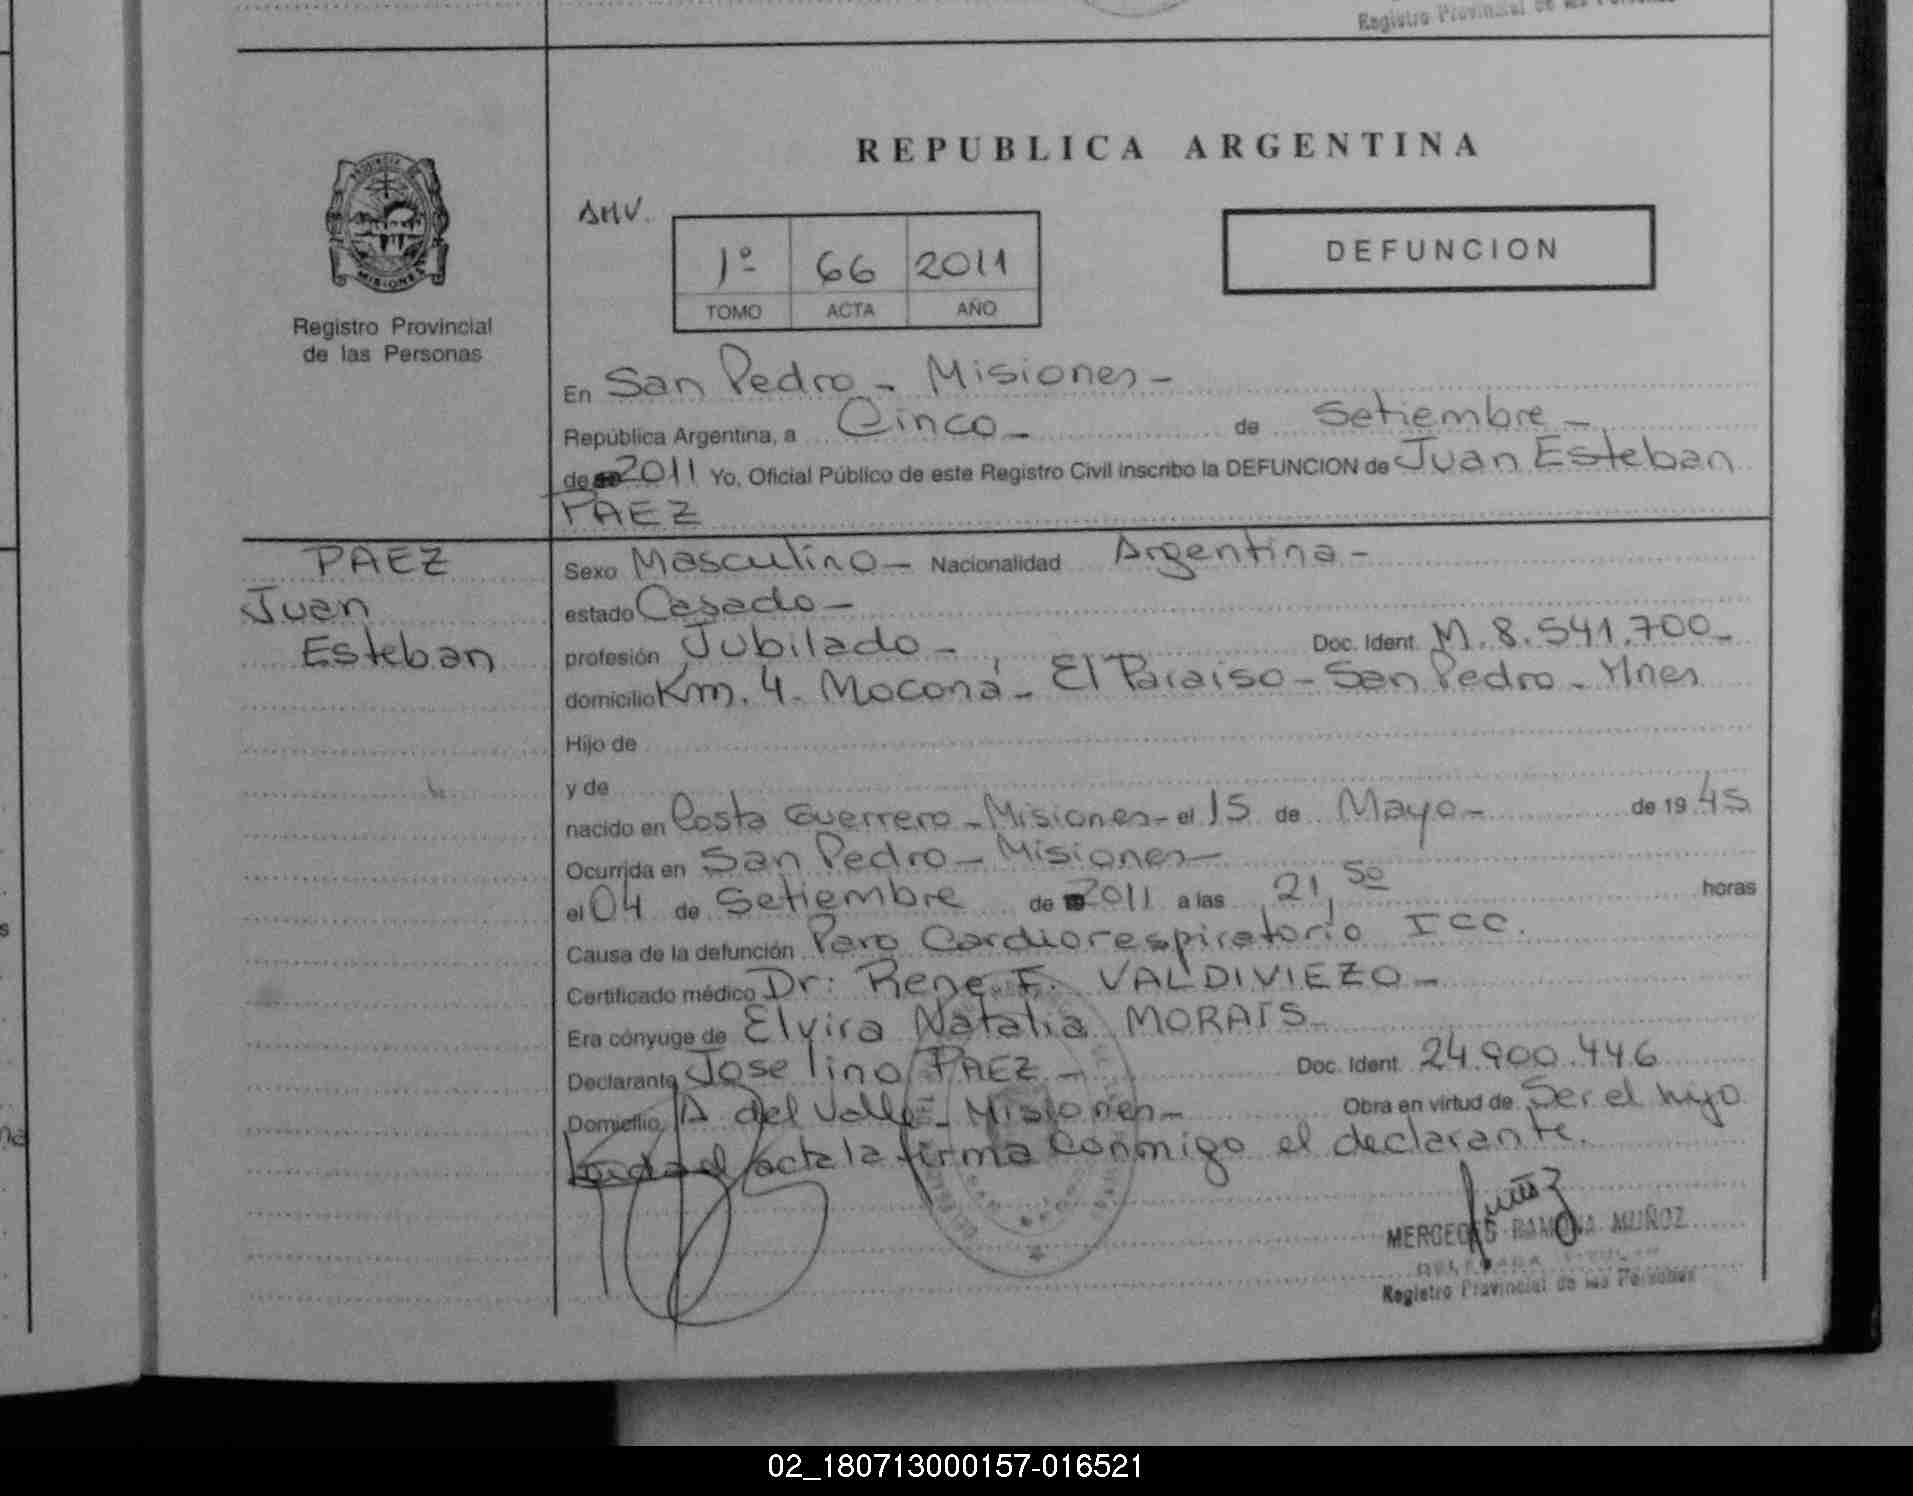 Registro Provincial de las Personas
REPUBLICA ARGENTINA
PROVINCIA DE
MISIONES
Registro Provincial
de las Personas
AHV.
1º 66 2011
TOMO ACTA AÑO
DEFUNCION
En San Pedro - Misiones -
República Argentina, a Cinco - de Setiembre -
de 2011 Yo, Oficial Público de este Registro Civil inscribo la DEFUNCION de Juan Esteban
PAEZ
PAEZ
Juan
Esteban
Sexo Masculino - Nacionalidad Argentina -
estado Casado -
profesión Jubilado - Doc. Ident. M. 8.541.700 -
domicilio Km. 4. Moconá - El Paraiso - San Pedro - Mnes
Hijo de
y de
nacido en Costa Guerrero - Misiones - el 15 de Mayo - de 19 45
Ocurrida en San Pedro - Misiones -
el 04 de Setiembre de 2011 a las 21,50 horas
Causa de la defunción Paro Cardiorespiratorio ICC.
Certificado médico Dr: Rene F. VALDIVIEZO -
Era cónyuge de Elvira Natalia MORAIS -
Declarante Joselino PAEZ - Doc. Ident. 24.900.446
Domicilio A. del Valle - Misiones - Obra en virtud de Ser el hijo
Leida el acta la firma conmigo el declarante.
Muñoz
MERCEDES RAMONA MUÑOZ
DELEGADA TITULAR
Registro Provincial de las Personas
02_180713000157-016521